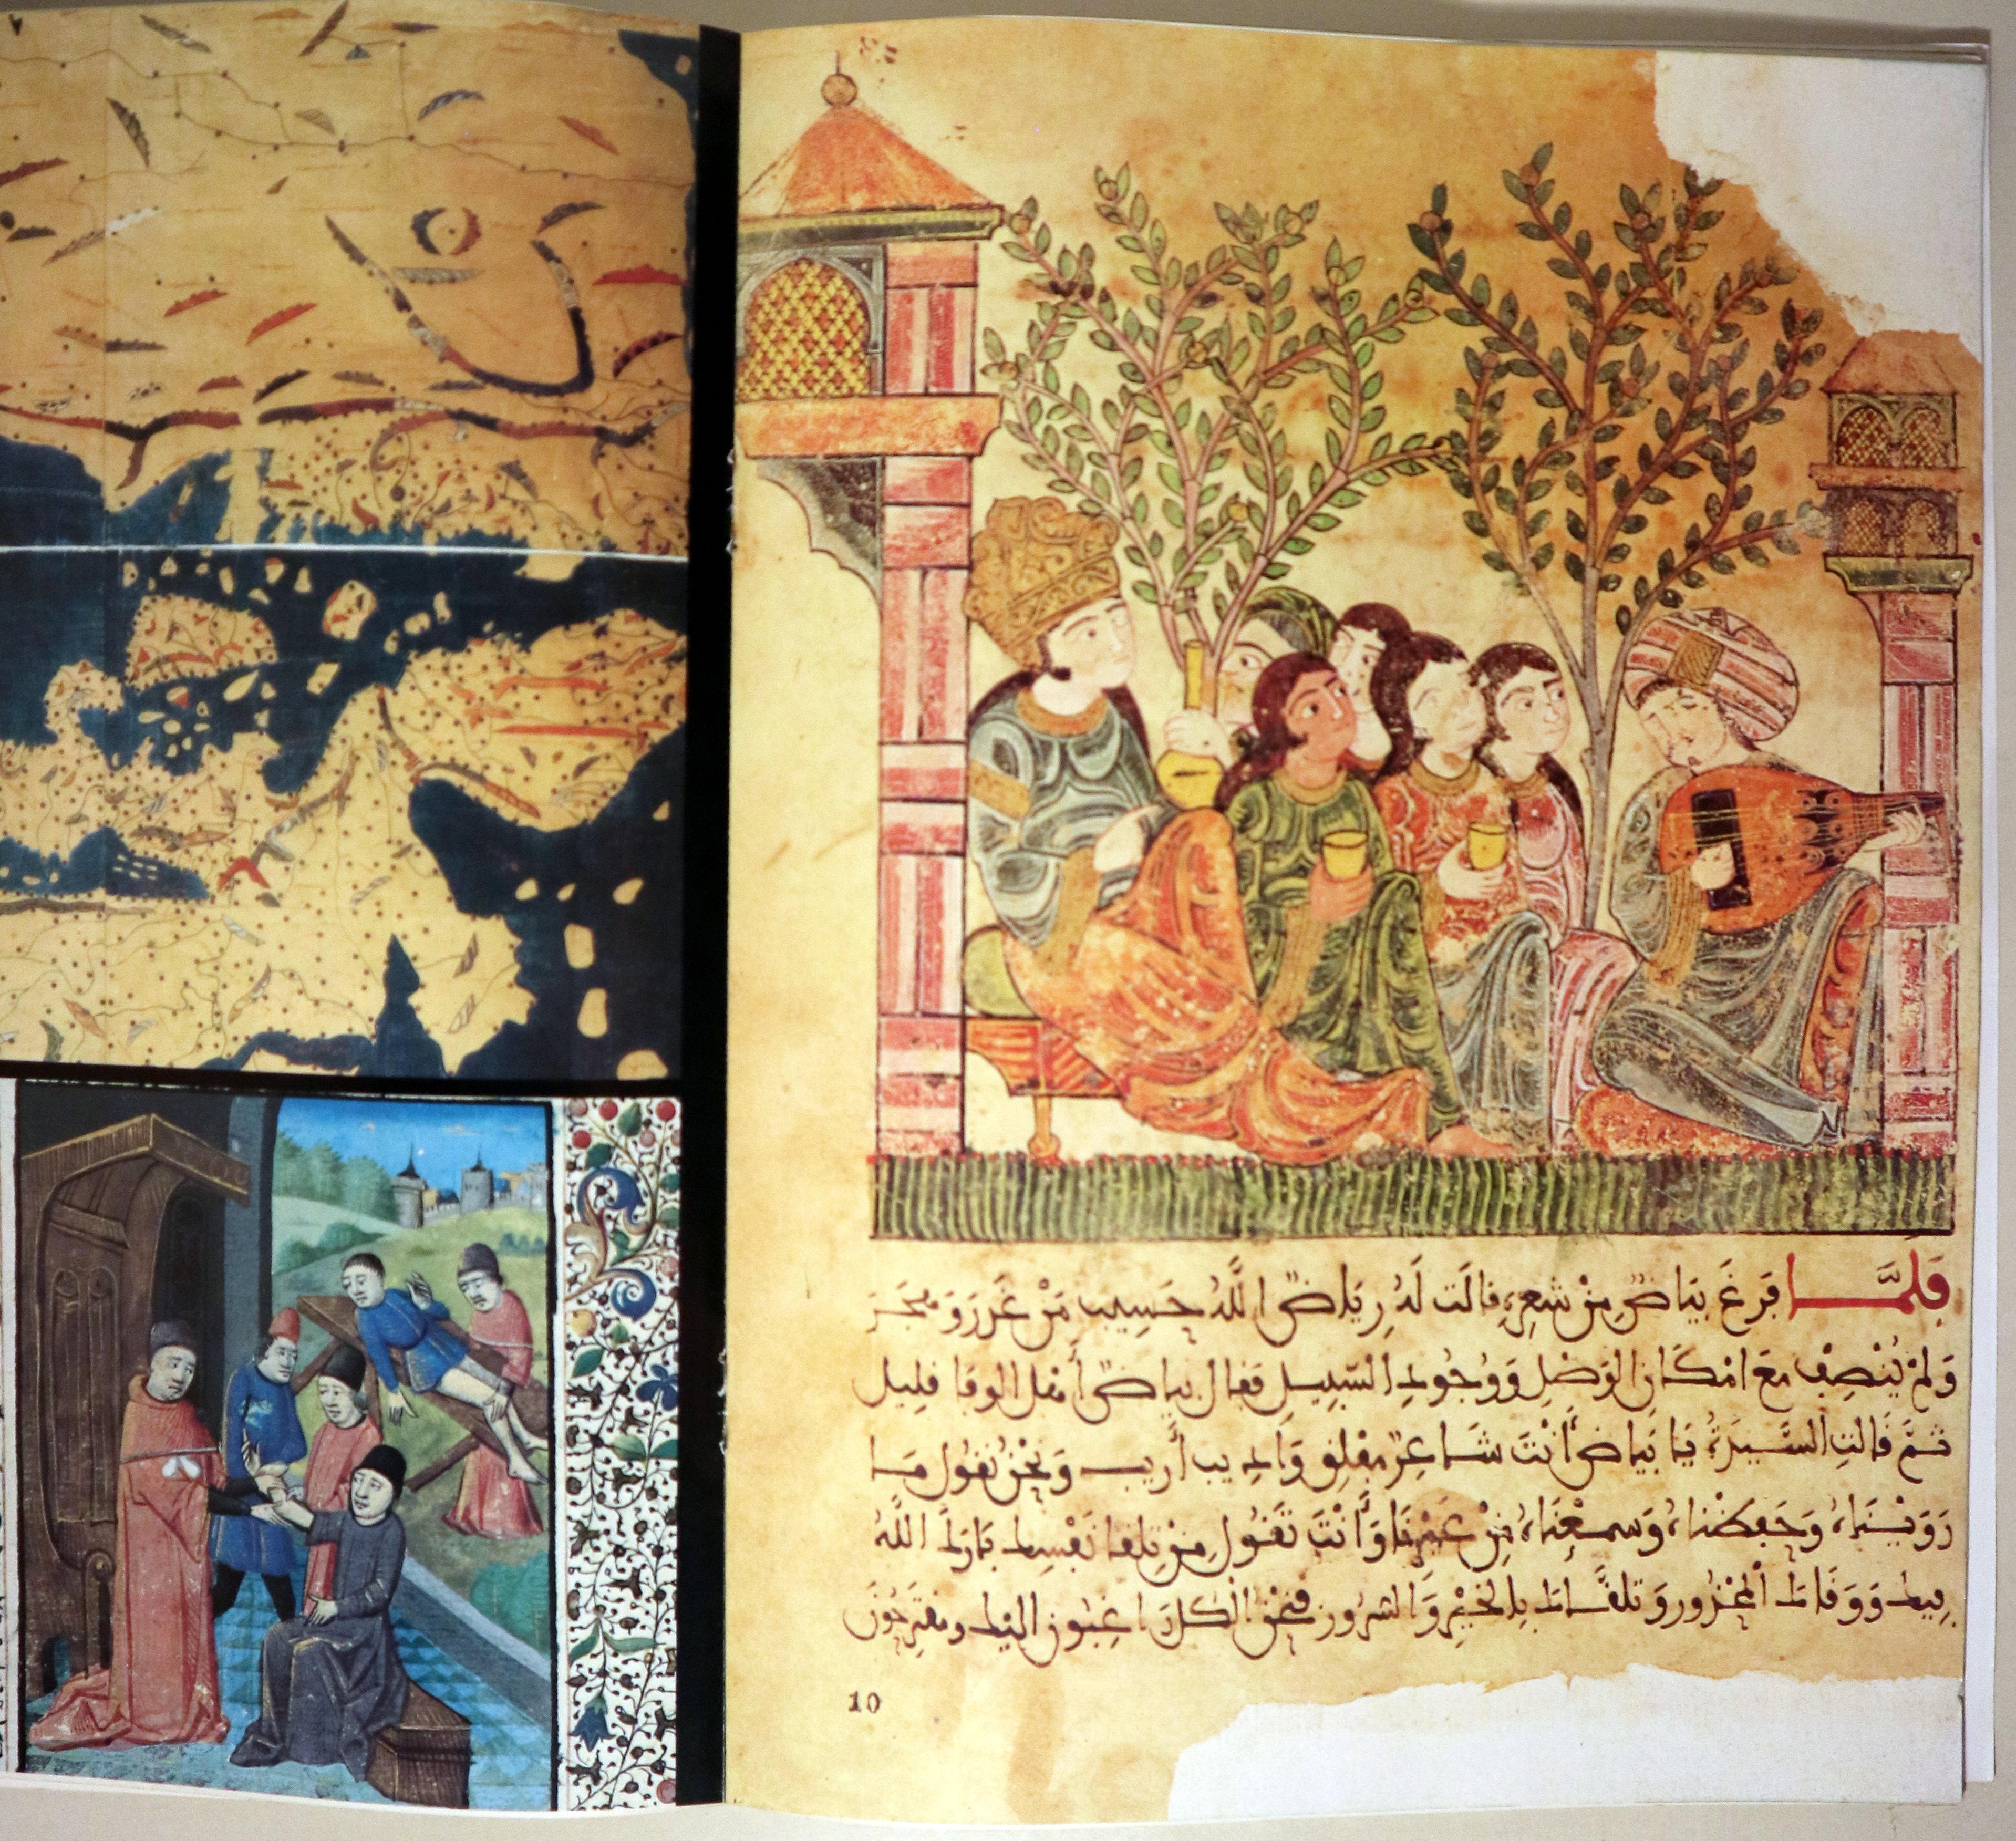 فلمَّا فرغَ بياضٌ مِنْ شعرِهِ قالَت لَهُ رِيَاضٌ اللَّهُ حَسِيب مَنْ غَرَرَ وَ
وَلمْ يُنْصِفْ معَ امْكَان الوَصْلِ وَوُجُودِ السَّبِيلِ فقال بياضٌ أهل الوفا قليل
ثمَّ قَالتِ السَّيِّدَةُ يَا بَيَاض أَنْتَ شَاعِرٌ مفْلِق وَأدِيب أَرِيب وَنحْنُ نقُول مَا
رَوَيْنَاهُ وَحَفِظْنَاهُ وَسمعْنَاهُ مِنْ غَيْرِنَا وَأَنْتَ تَقُول مِنْ تِلقا نَفْسِك بَارَكَ اللَّهُ
فِيك وَوَقَاكَ المحْذُور وَتلقَّاكَ بِالخَيْرِ وَالسُرُورِ فنحْنُ الكلّ رَاغِبُون اليْك ومقتَرِحُونَ
10